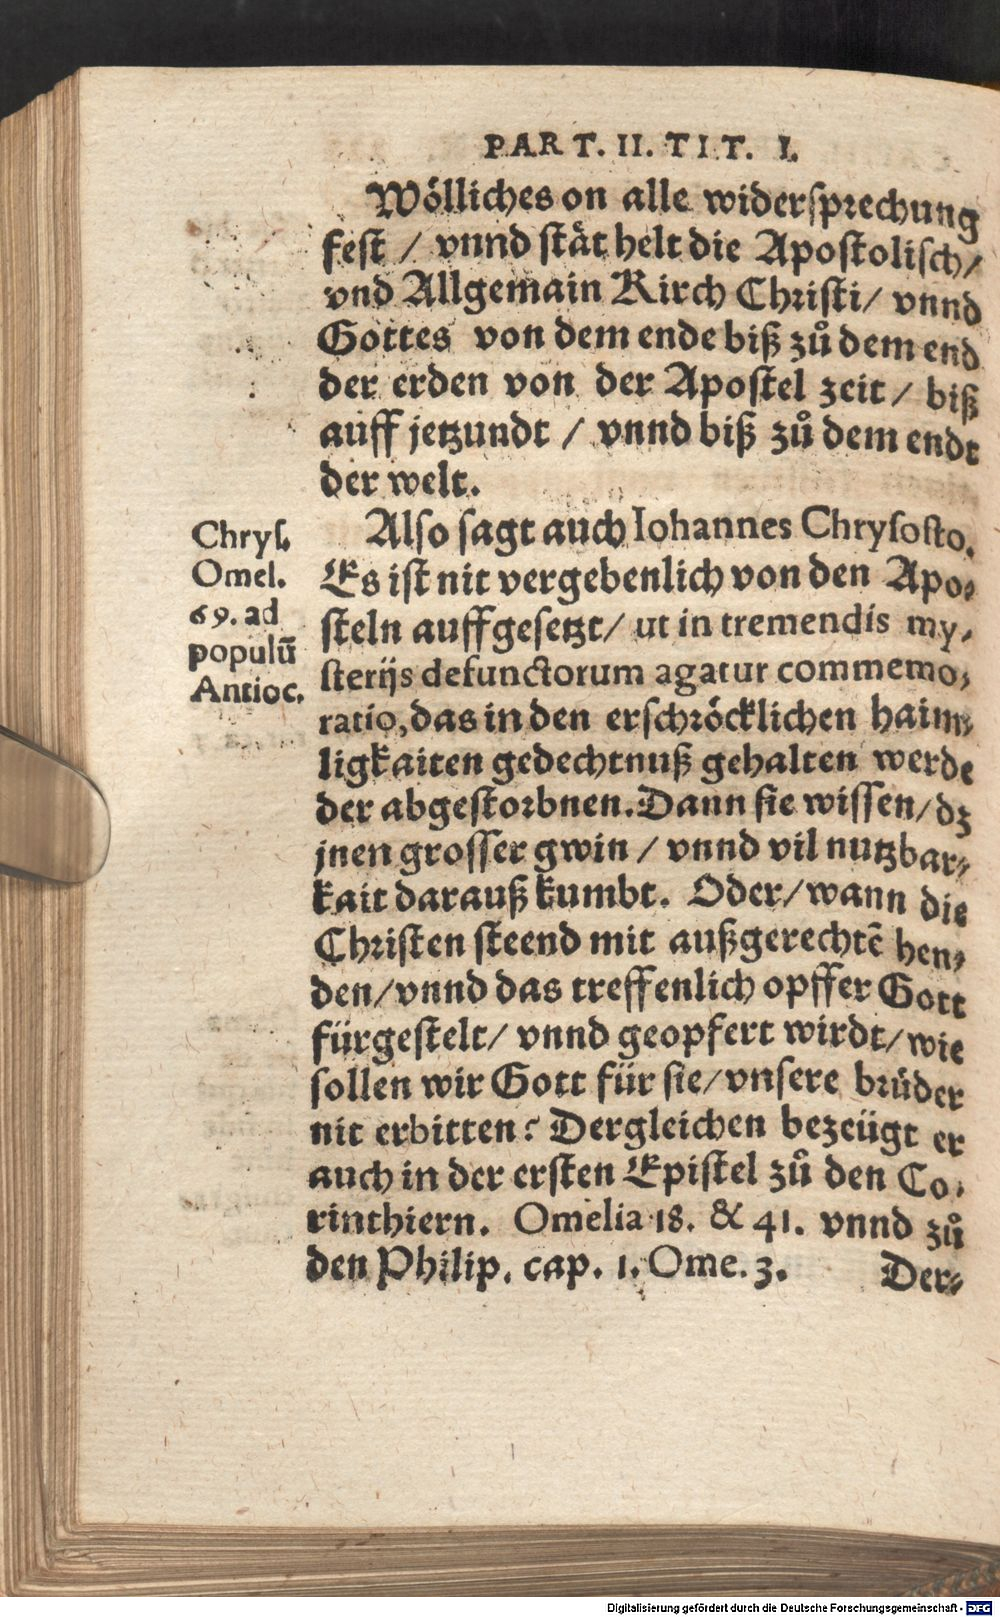 PART. II. TIT. I.
Wölliches on alle widersprechung
fest / vnnd stät helt die Apostolisch/
vnd Allgemain Kirch Christi/ vnnd
Gottes von dem ende biß zů dem end
der erden von der Apostel zeit / biß
auff jetzundt / vnnd biß zů dem endt
der welt.
Also sagt auch Iohannes Chrysosto.
Es ist nit vergebenlich von den Apo-
steln auffgesetzt/ ut in tremendis my-
sterijs defunctorum agatur commemo-
ratio, das in den erschröcklichen haim-
ligkaiten gedechtnuß gehalten werde
der abgestorbnen. Dann sie wissen/ dz
jnen grosser gwin / vnnd vil nutzbar-
kait darauß kumbt. Oder/ wann die
Christen steend mit außgerechtē hen-
den/ vnnd das treffenlich opffer Gott
fürgestelt/ vnnd geopfert wirdt/ wie
sollen wir Gott für sie/ vnsere brüder
nit erbitten? Dergleichen bezeügt er
auch in der ersten Epistel zů den Co-
rinthiern. Omelia 18. & 41. vnnd zů
den Philip. cap. 1. Ome. 3.
Der-
Chrys.
Omel.
69. ad
populū
Antioc.
Digitalisierung gefördert durch die Deutsche Forschungsgemeinschaft - DFG